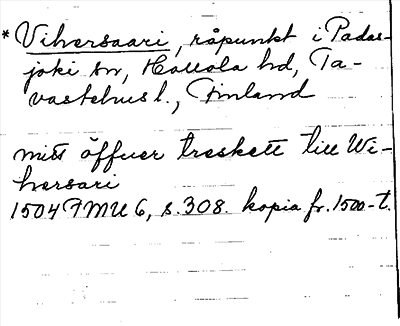 * Vihersaari, råpunkt i Padas-
joki sn, Hollola hd, Ta-
vastehus l., Finland
mitt öffuer treskett till Wi-
hersari
1504 FMU 6, s. 308. kopia fr. 1500-t.